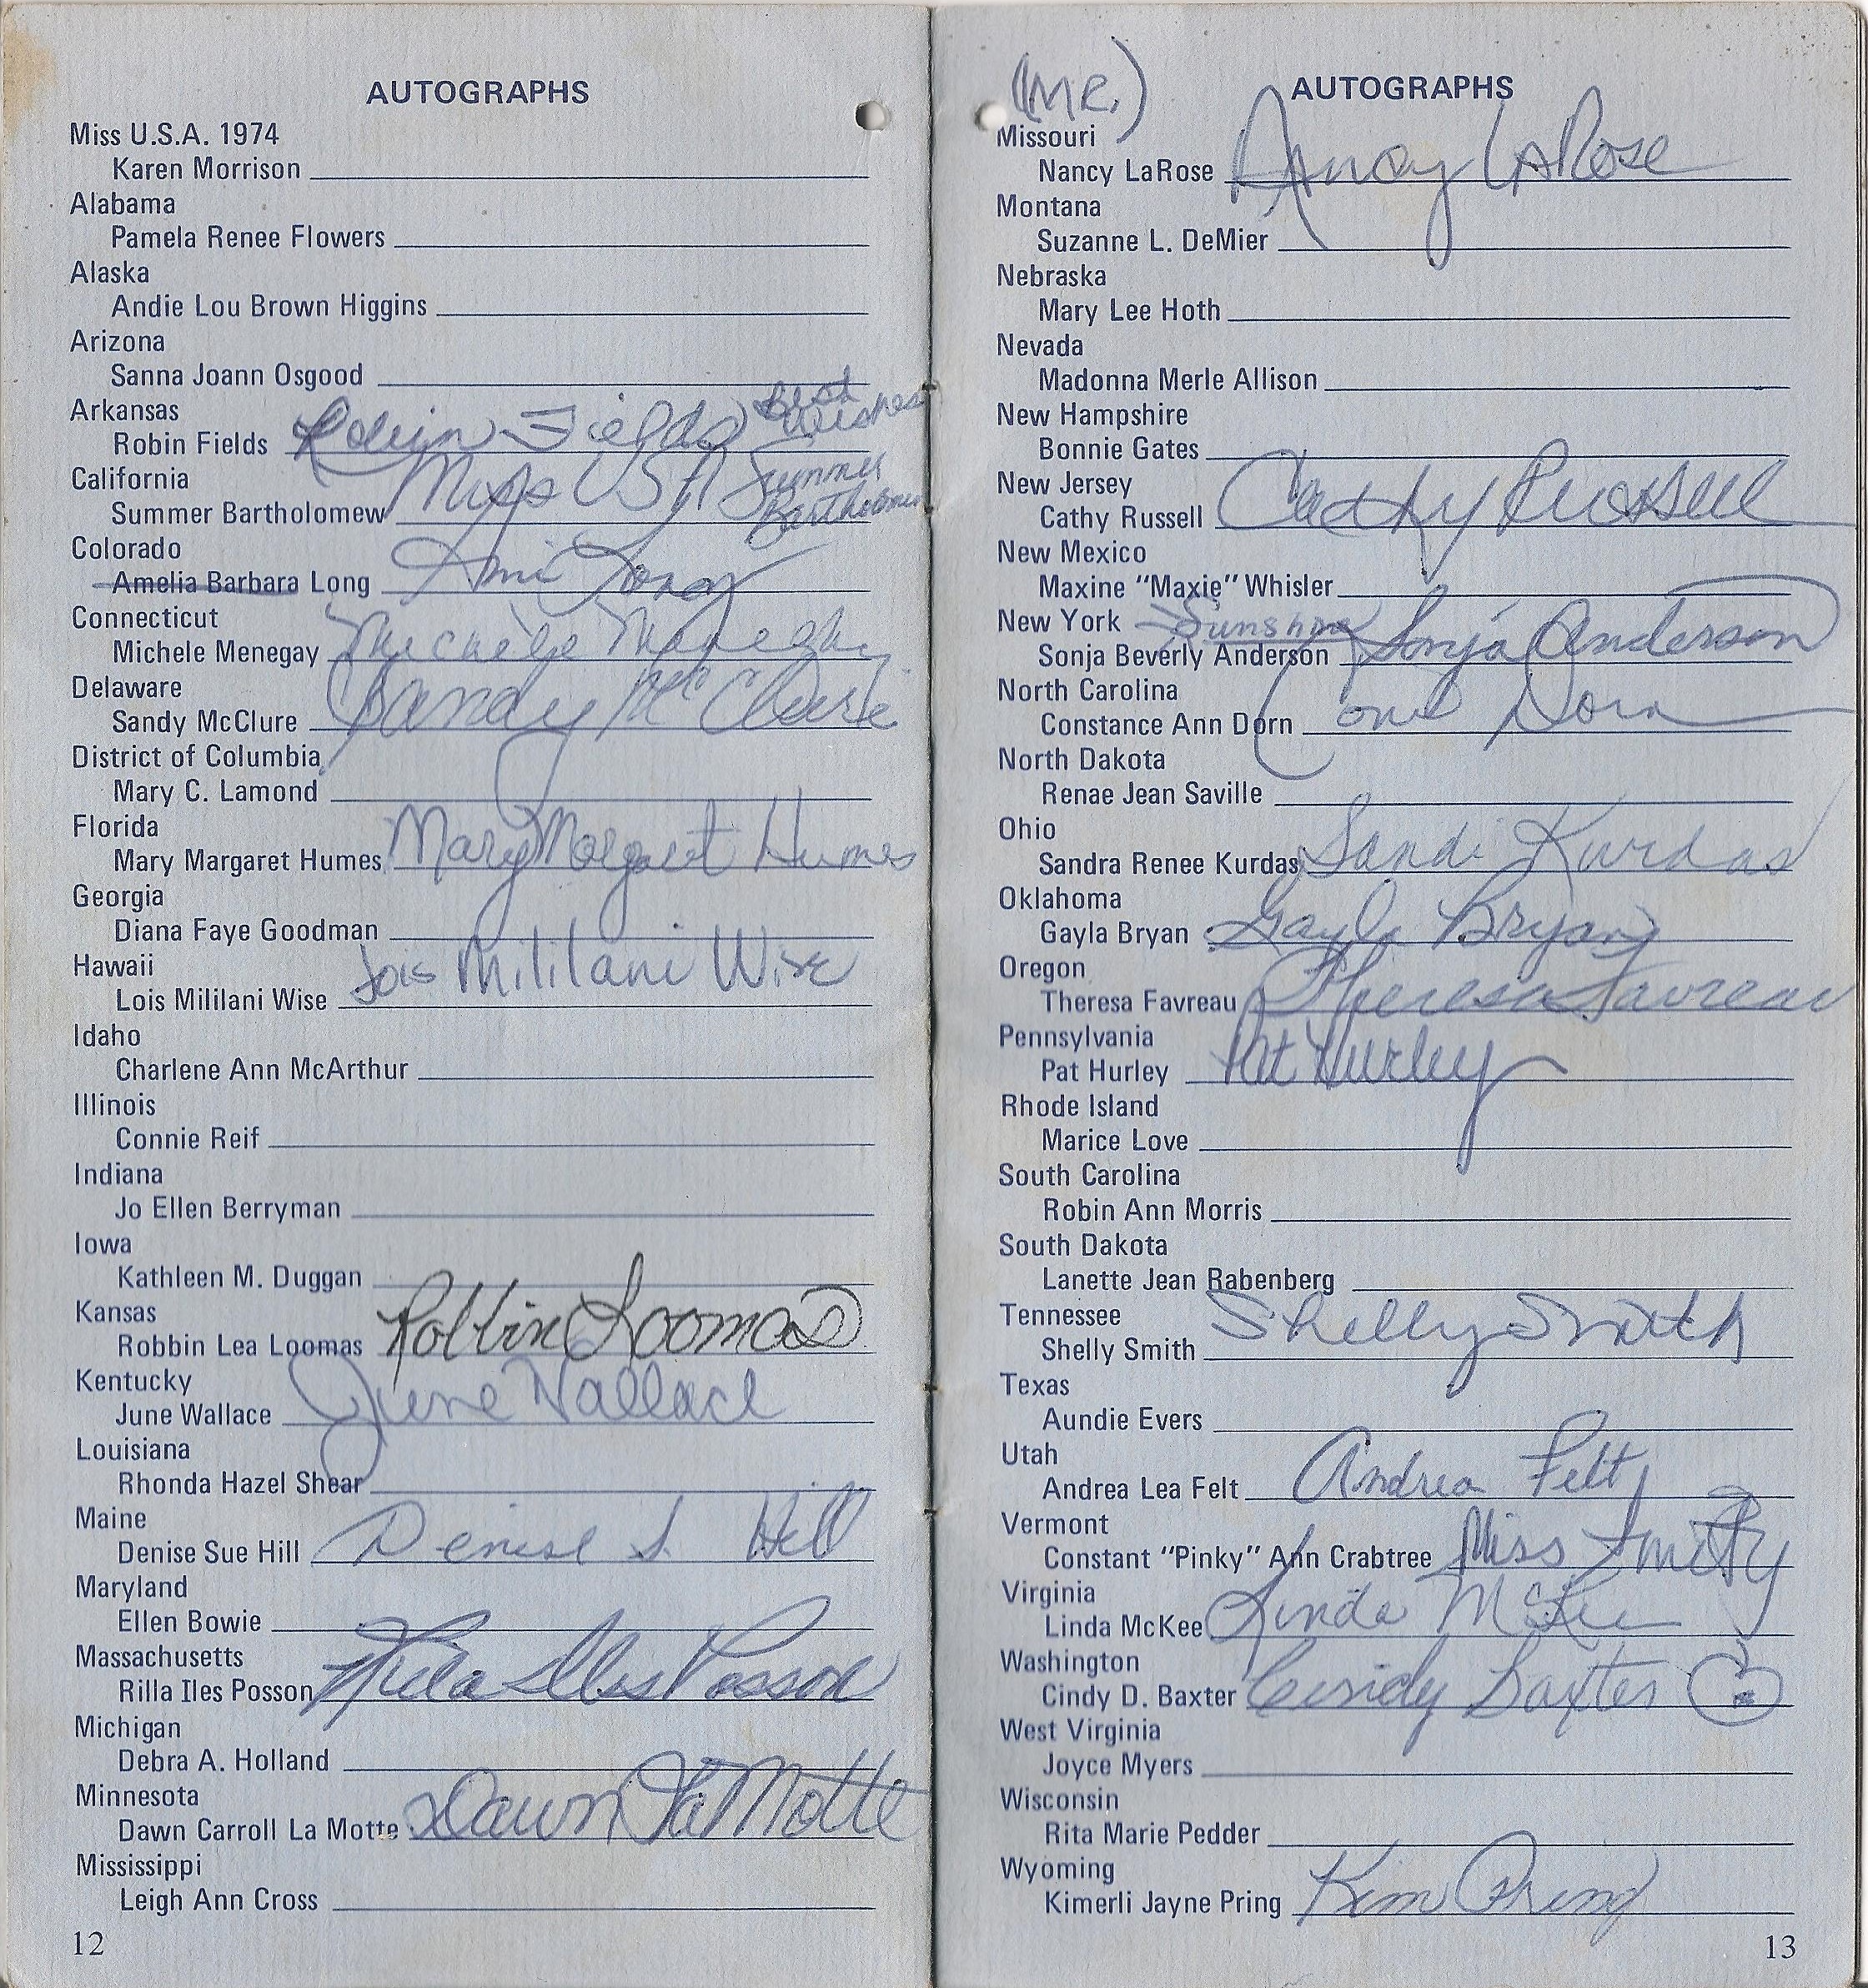 AUTOGRAPHS
Miss U.S.A. 1974
Karen Morrison
Alabama
Pamela Renee Flowers
Alaska
Andie Lou Brown Higgins
Arizona
Sanna Joann Osgood
Arkansas
Robin Fields Robin Fields Best Wishes
California
Summer Bartholomew Miss USA Summer Bartholomew
Colorado
Amelia Barbara Long Ami Long
Connecticut
Michele Menegay Michele Menegay
Delaware
Sandy McClure Sandy McClure
District of Columbia
Mary C. Lamond
Florida
Mary Margaret Humes Mary Margaret Humes
Georgia
Diana Faye Goodman
Hawaii
Lois Mililani Wise Lois Mililani Wise
Idaho
Charlene Ann McArthur
Illinois
Connie Reif
Indiana
Jo Ellen Berryman
Iowa
Kathleen M. Duggan
Kansas
Robbin Lea Loomas Robbin Loomas
Kentucky
June Wallace June Wallace
Louisiana
Rhonda Hazel Shear
Maine
Denise Sue Hill Denise S. Hill
Maryland
Ellen Bowie
Massachusetts
Rilla Iles Posson Rilla Iles Posson
Michigan
Debra A. Holland
Minnesota
Dawn Carroll La Motte Dawn La Motte
Mississippi
Leigh Ann Cross
12
(ME.) AUTOGRAPHS
Missouri
Nancy LaRose Nancy LaRose
Montana
Suzanne L. DeMier
Nebraska
Mary Lee Hoth
Nevada
Madonna Merle Allison
New Hampshire
Bonnie Gates
New Jersey
Cathy Russell Cathy Russell
New Mexico
Maxine “Maxie” Whisler
New York Sunshine
Sonja Beverly Anderson Sonja Anderson
North Carolina
Constance Ann Dorn Dorn
North Dakota
Renae Jean Saville
Ohio
Sandra Renee Kurdas Sandi Kurdas
Oklahoma
Gayla Bryan Gayla Bryan
Oregon
Theresa Favreau Theresa Favreau
Pennsylvania
Pat Hurley Pat Hurley
Rhode Island
Marice Love
South Carolina
Robin Ann Morris
South Dakota
Lanette Jean Rabenberg
Tennessee
Shelly Smith Shelly Smith
Texas
Aundie Evers
Utah
Andrea Lea Felt Andrea Felt
Vermont
Constant “Pinky” Ann Crabtree Miss
Virginia
Linda McKee Linda McKee
Washington
Cindy D. Baxter Cindy Baxter
West Virginia
Joyce Myers
Wisconsin
Rita Marie Pedder
Wyoming
Kimerli Jayne Pring Kim Pring
13